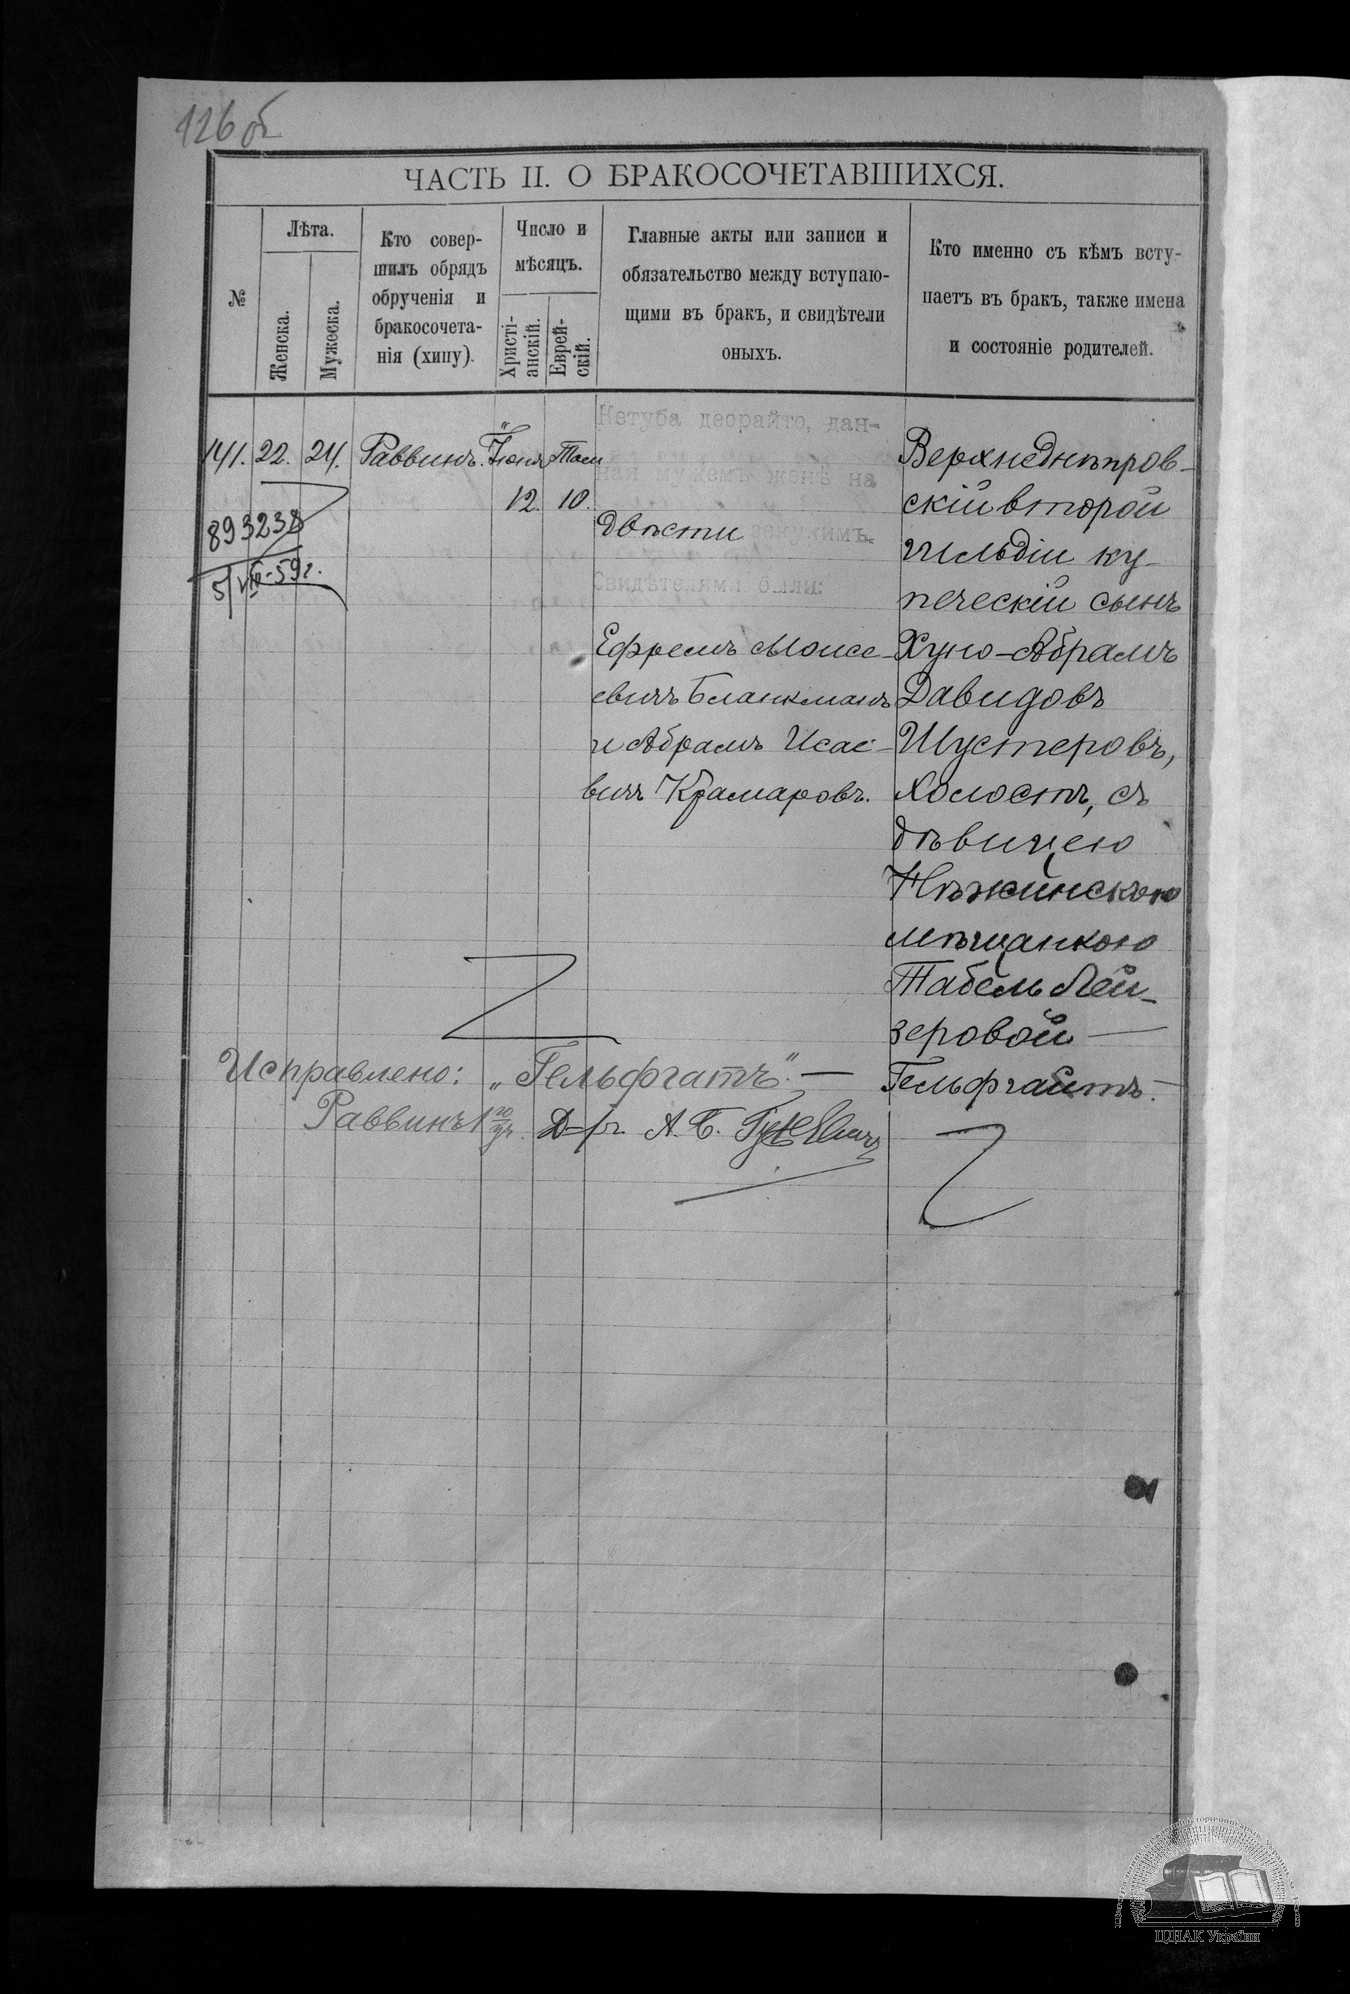 126 об
ЧАСТЬ II. О БРАКОСОЧЕТАВШИХСЯ.
№
Лѣта.
Женска.
Мужеска.
Кто совер-
шилъ обрядъ
обрученія и
бракосочета-
нія (хупу).
Число и
мѣсяцъ.
Христі-
анскій.
Еврей-
скій.
Главные акты или записи и
обязательство между вступаю-
щими въ бракъ, и свидѣтели
оныхъ.
Кто именно съ кѣмъ всту-
паетъ въ бракъ, также имена
и состояніе родителей.
141. 22. 24. Раввинъ. Іюня
12. 10.
893238
5/VI-59г.
Кетуба деорайто, дан-
ная мужемъ женѣ на
двѣсти зенукимъ.
Свидѣтелями были:
Ефремъ Моисе-
евичъ Бланкманъ
и Абрамъ Исае-
вичъ Крамаровъ.
Верхнеднѣпров-
скій второй
гильдіи ку-
печескій сынъ
Хуно-Абрамъ
Давидовъ
Шустеровъ,
холостъ, съ
дѣвицею
Нѣжинскою
мѣщанкою
Табель Лей-
зеровой —
Гельфгатъ.
Исправлено: „Гельфгатъ". —
Раввинъ Д-ръ А. Б. Гуревичъ
ЦДІАК України